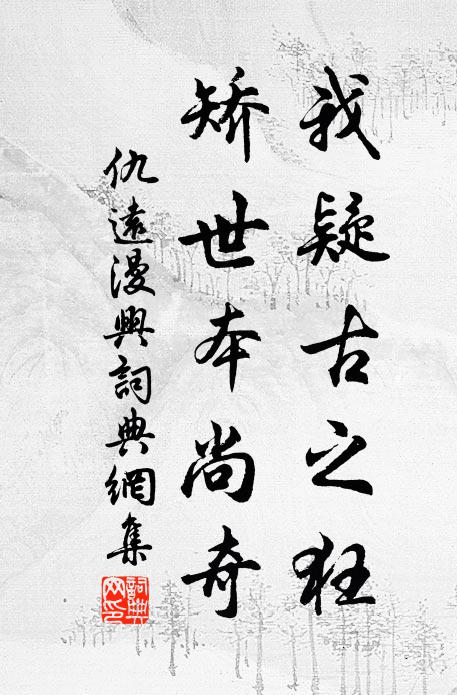 我疑古之狂
矫世本尚奇
仇遠漫興詞典網集
詞典网印